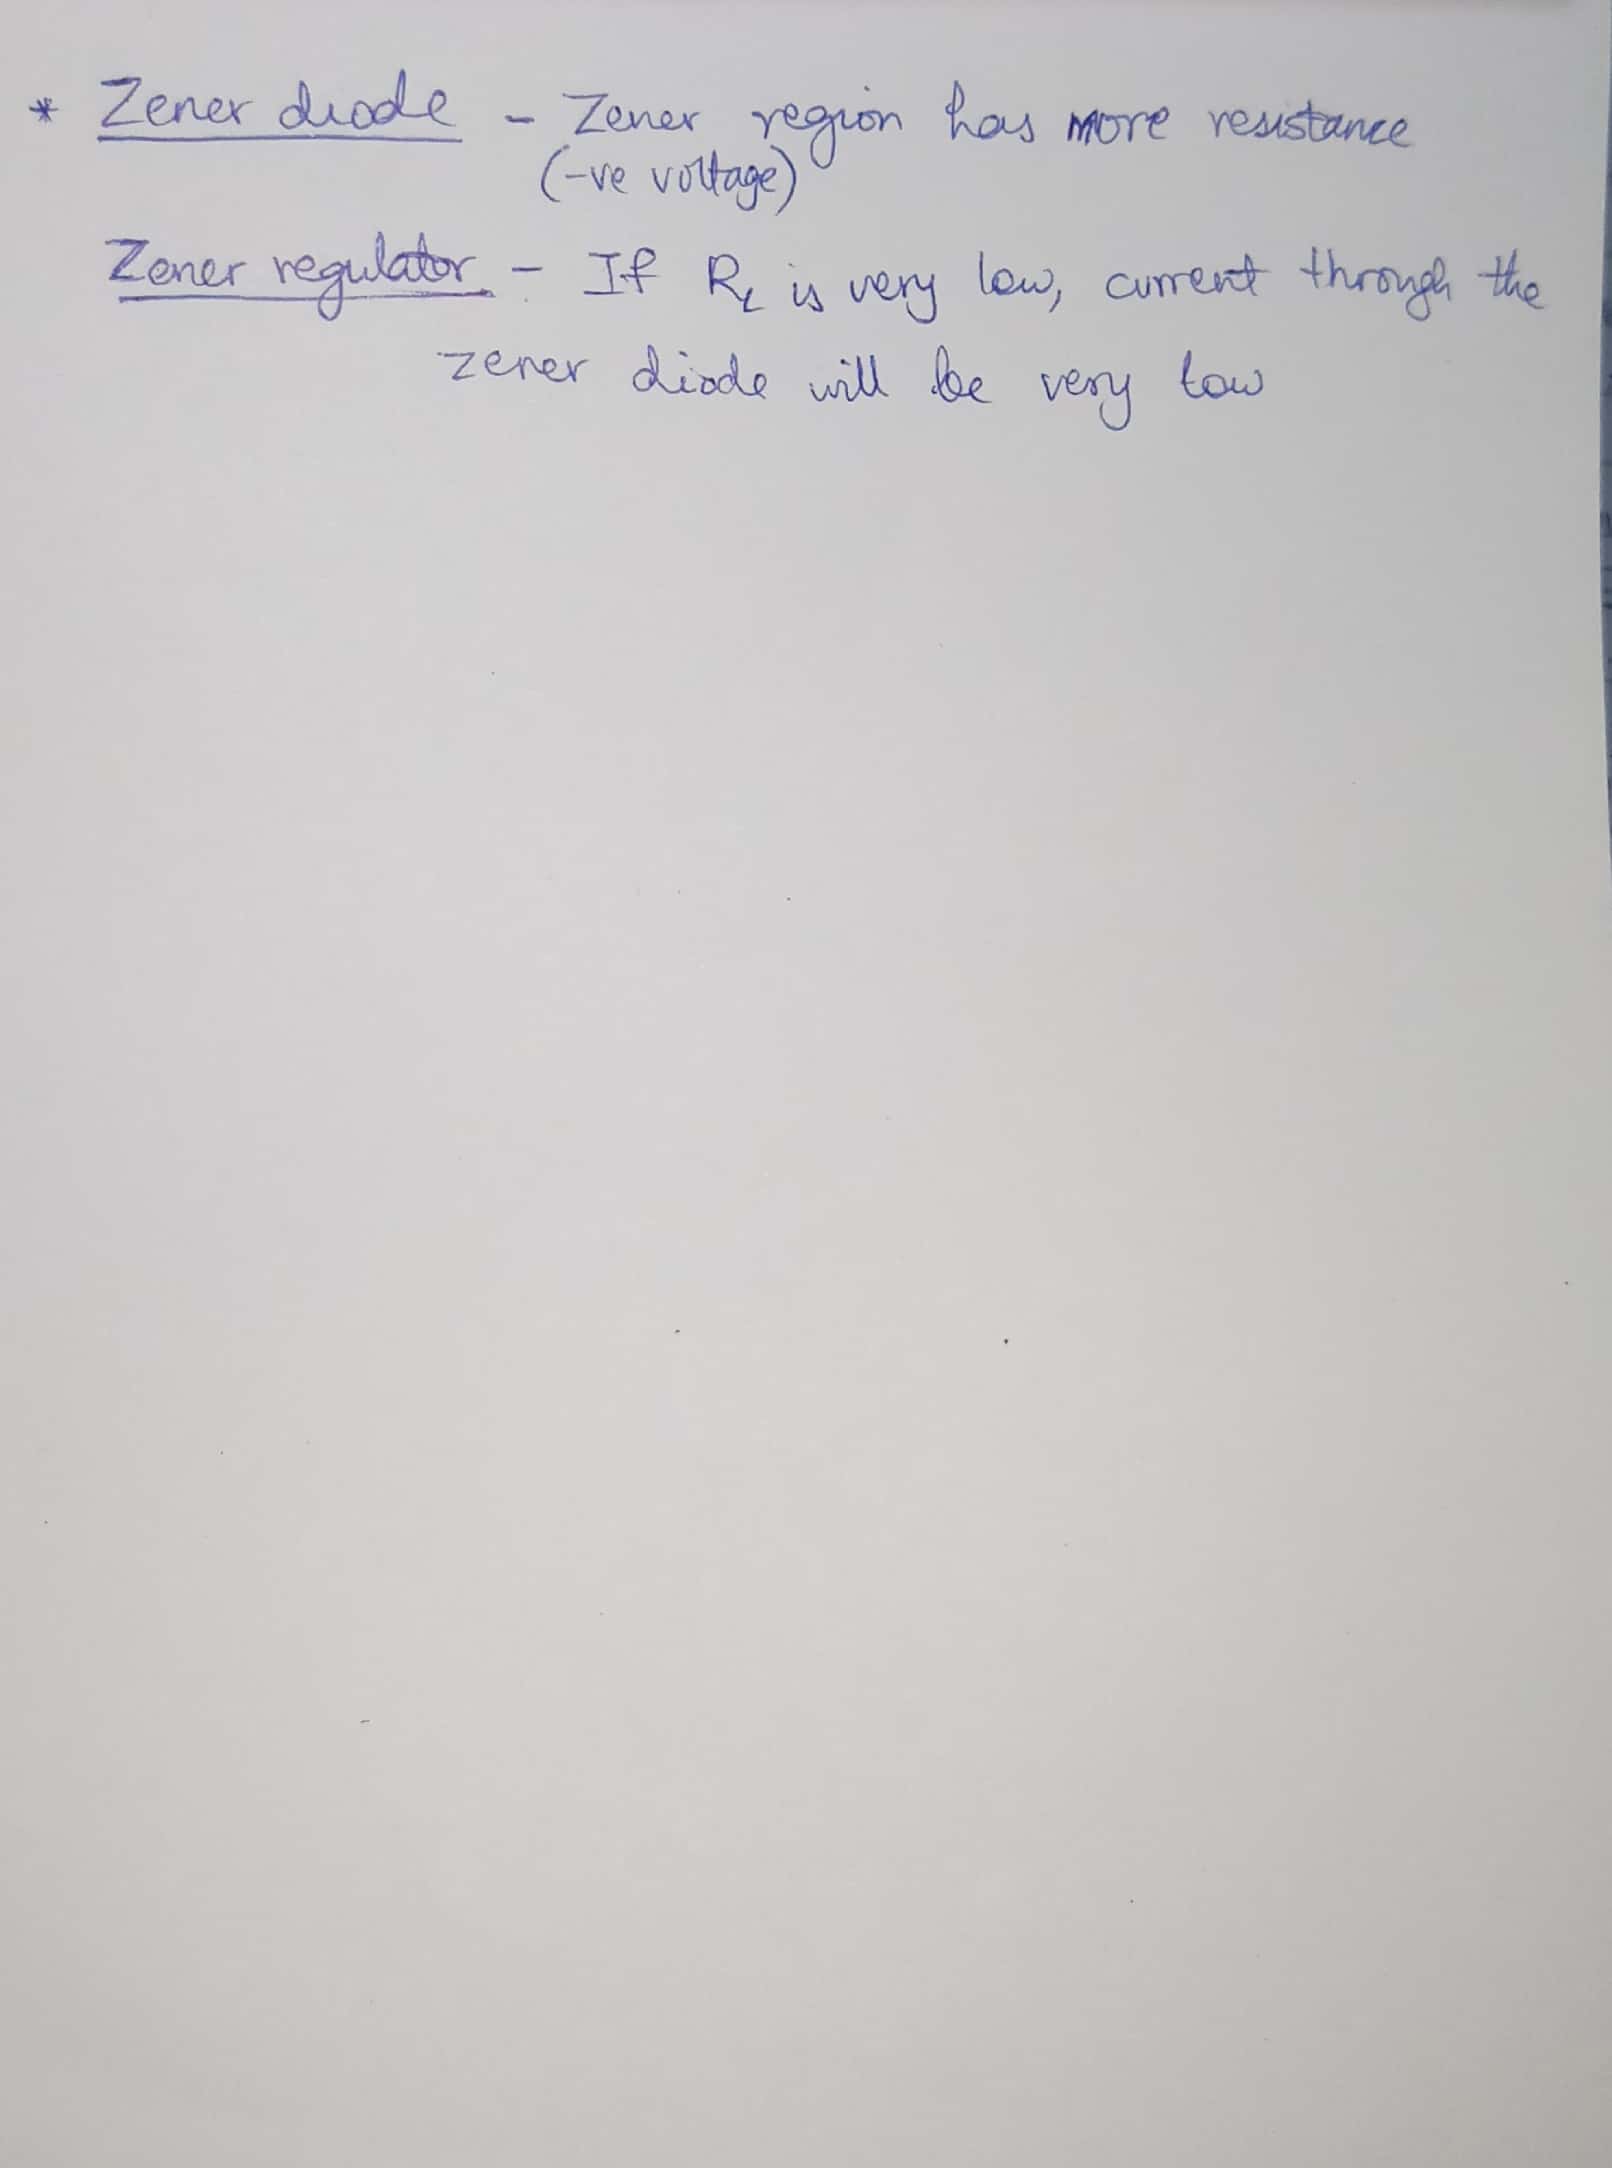 * Zener diode - Zener region has more resistance
(-ve voltage)
Zener regulator - If RL is very low, current through the
zener diode will be very low